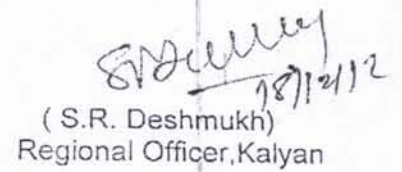 18/12/12
( S.R. Deshmukh)
Regional Officer,Kalyan